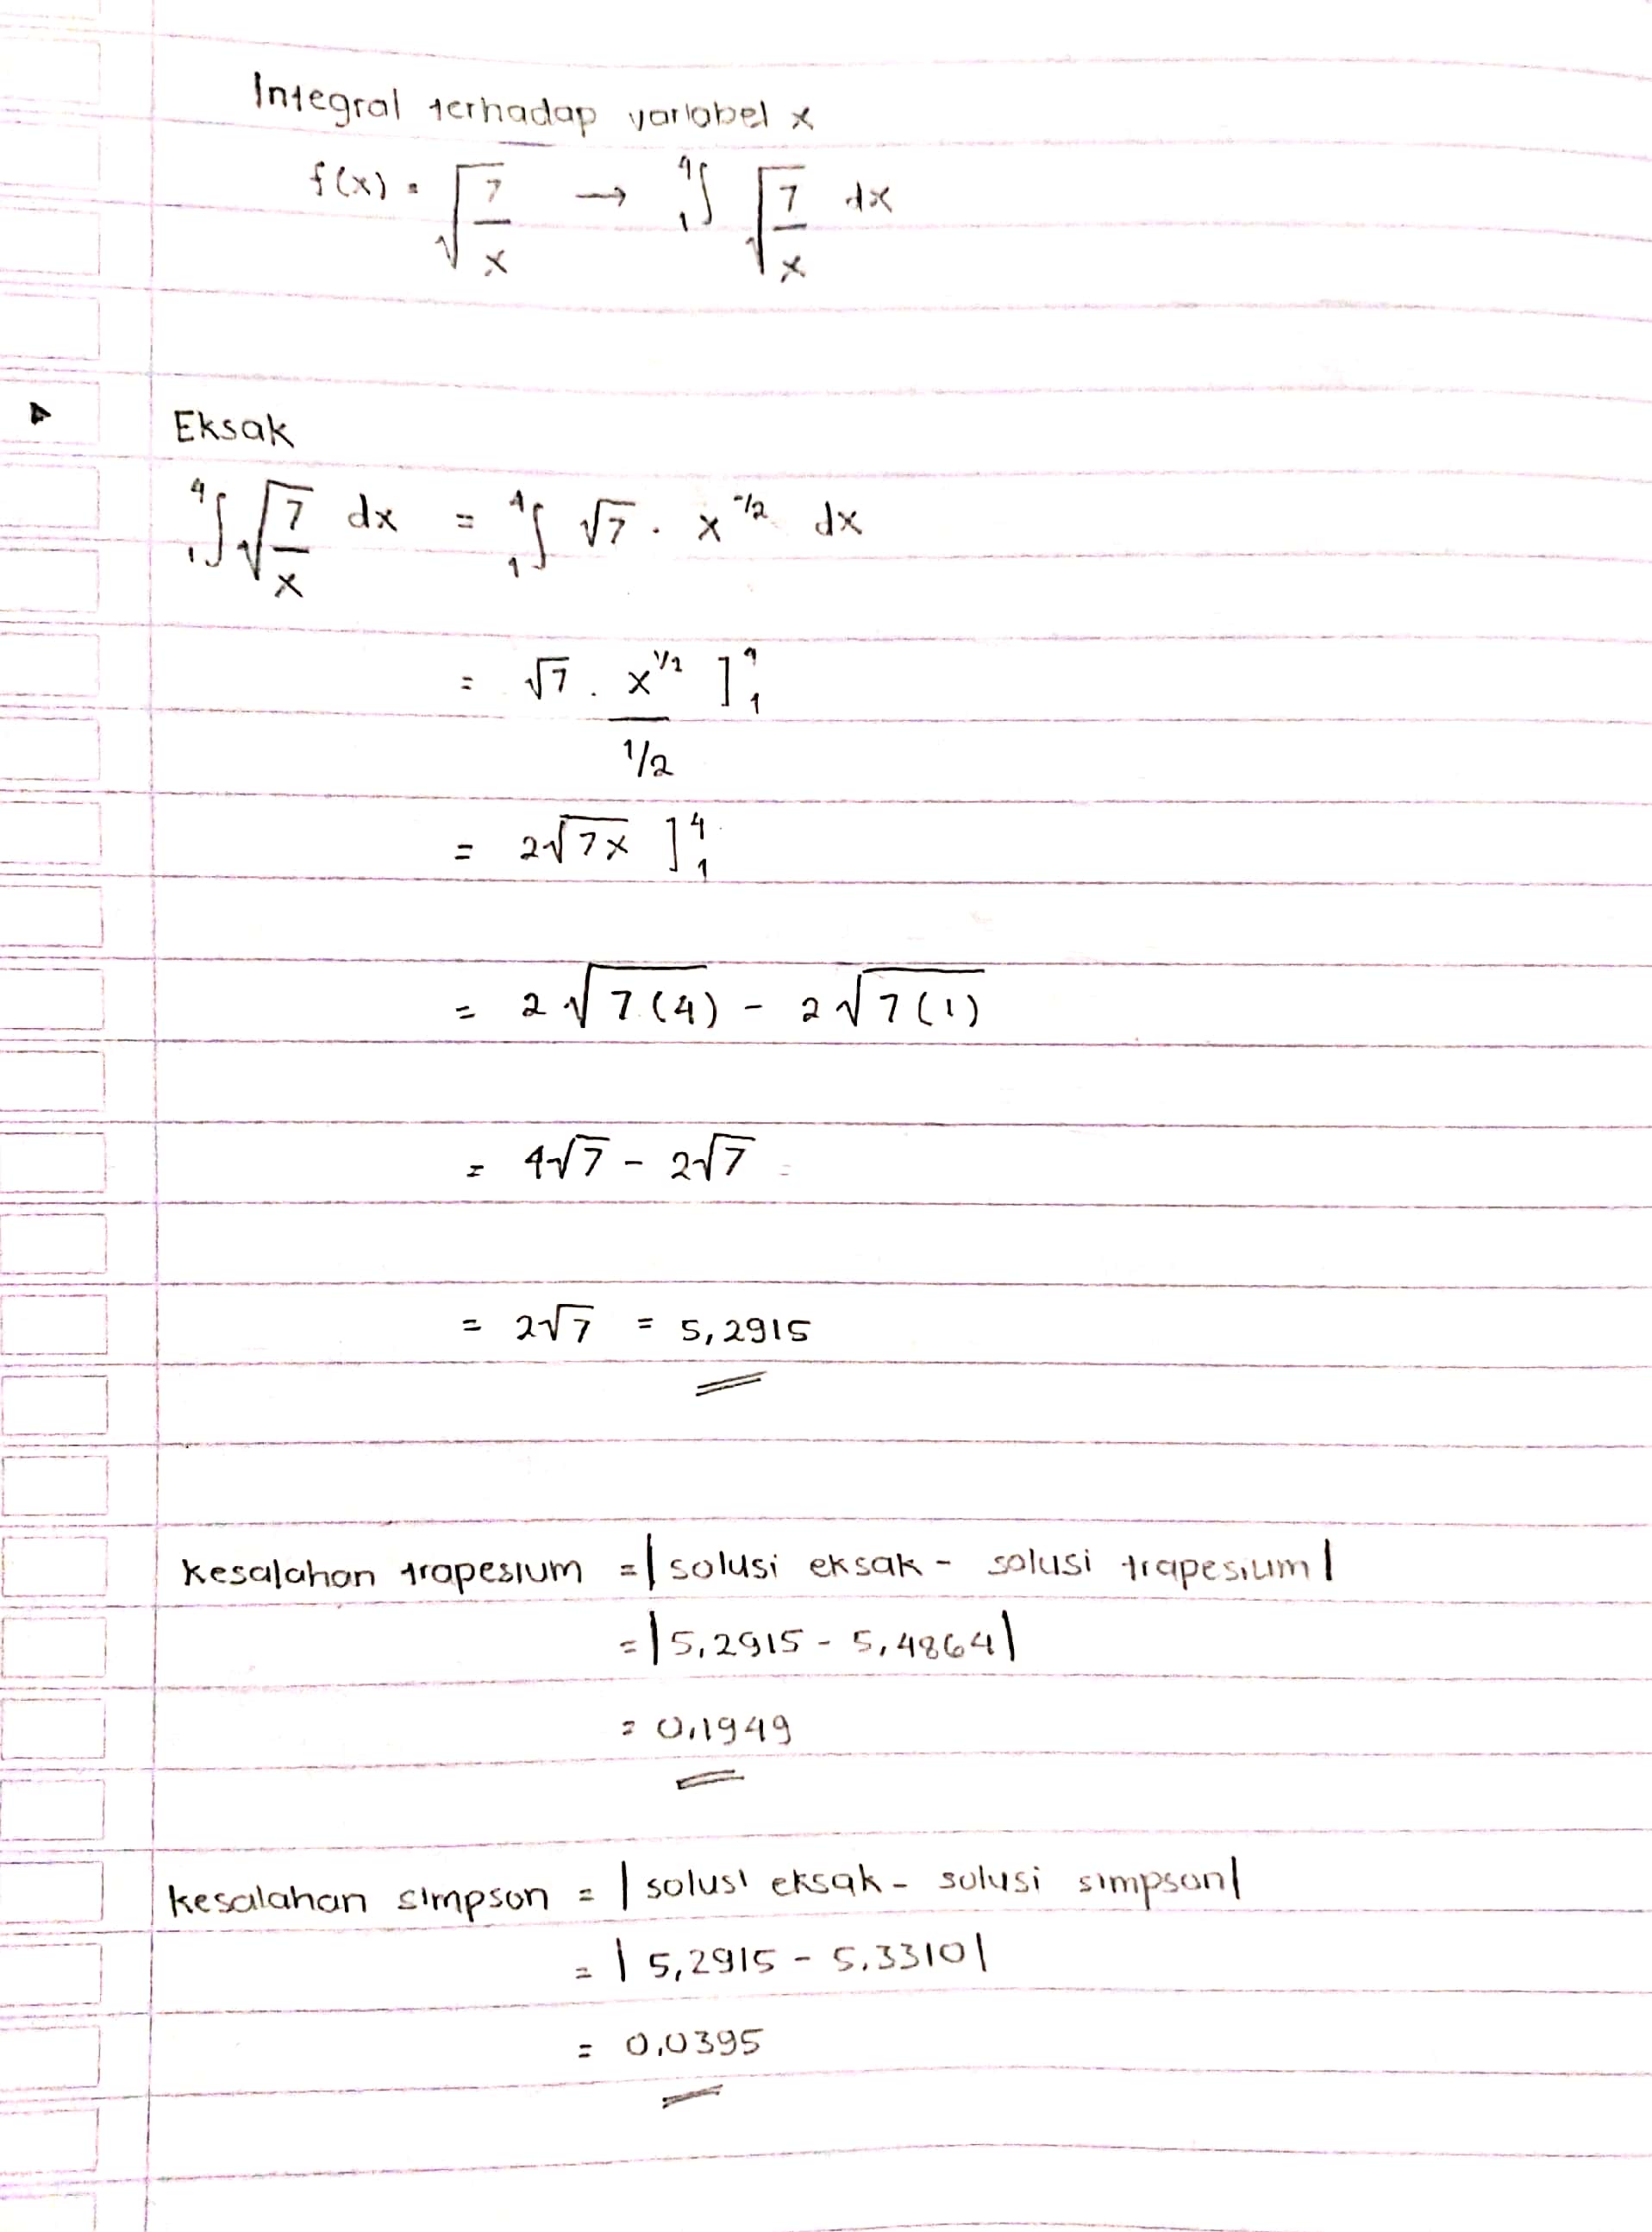 Integral terhadap variabel x
f(x) = √(7/x) → ₁⁴∫ √(7/x) dx
Eksak
₁⁴∫ √(7/x) dx = ₁⁴∫ √7 . x^(-1/2) dx
= √7 . x^(1/2) / (1/2) ]₁⁴
= 2√(7x) ]₁⁴
= 2√(7(4)) - 2√(7(1))
= 4√7 - 2√7
= 2√7 = 5,2915
kesalahan trapesium = | solusi eksak - solusi trapesium |
= | 5,2915 - 5,4864 |
= 0,1949
kesalahan simpson = | solusi eksak - solusi simpson |
= | 5,2915 - 5,3310 |
= 0,0395